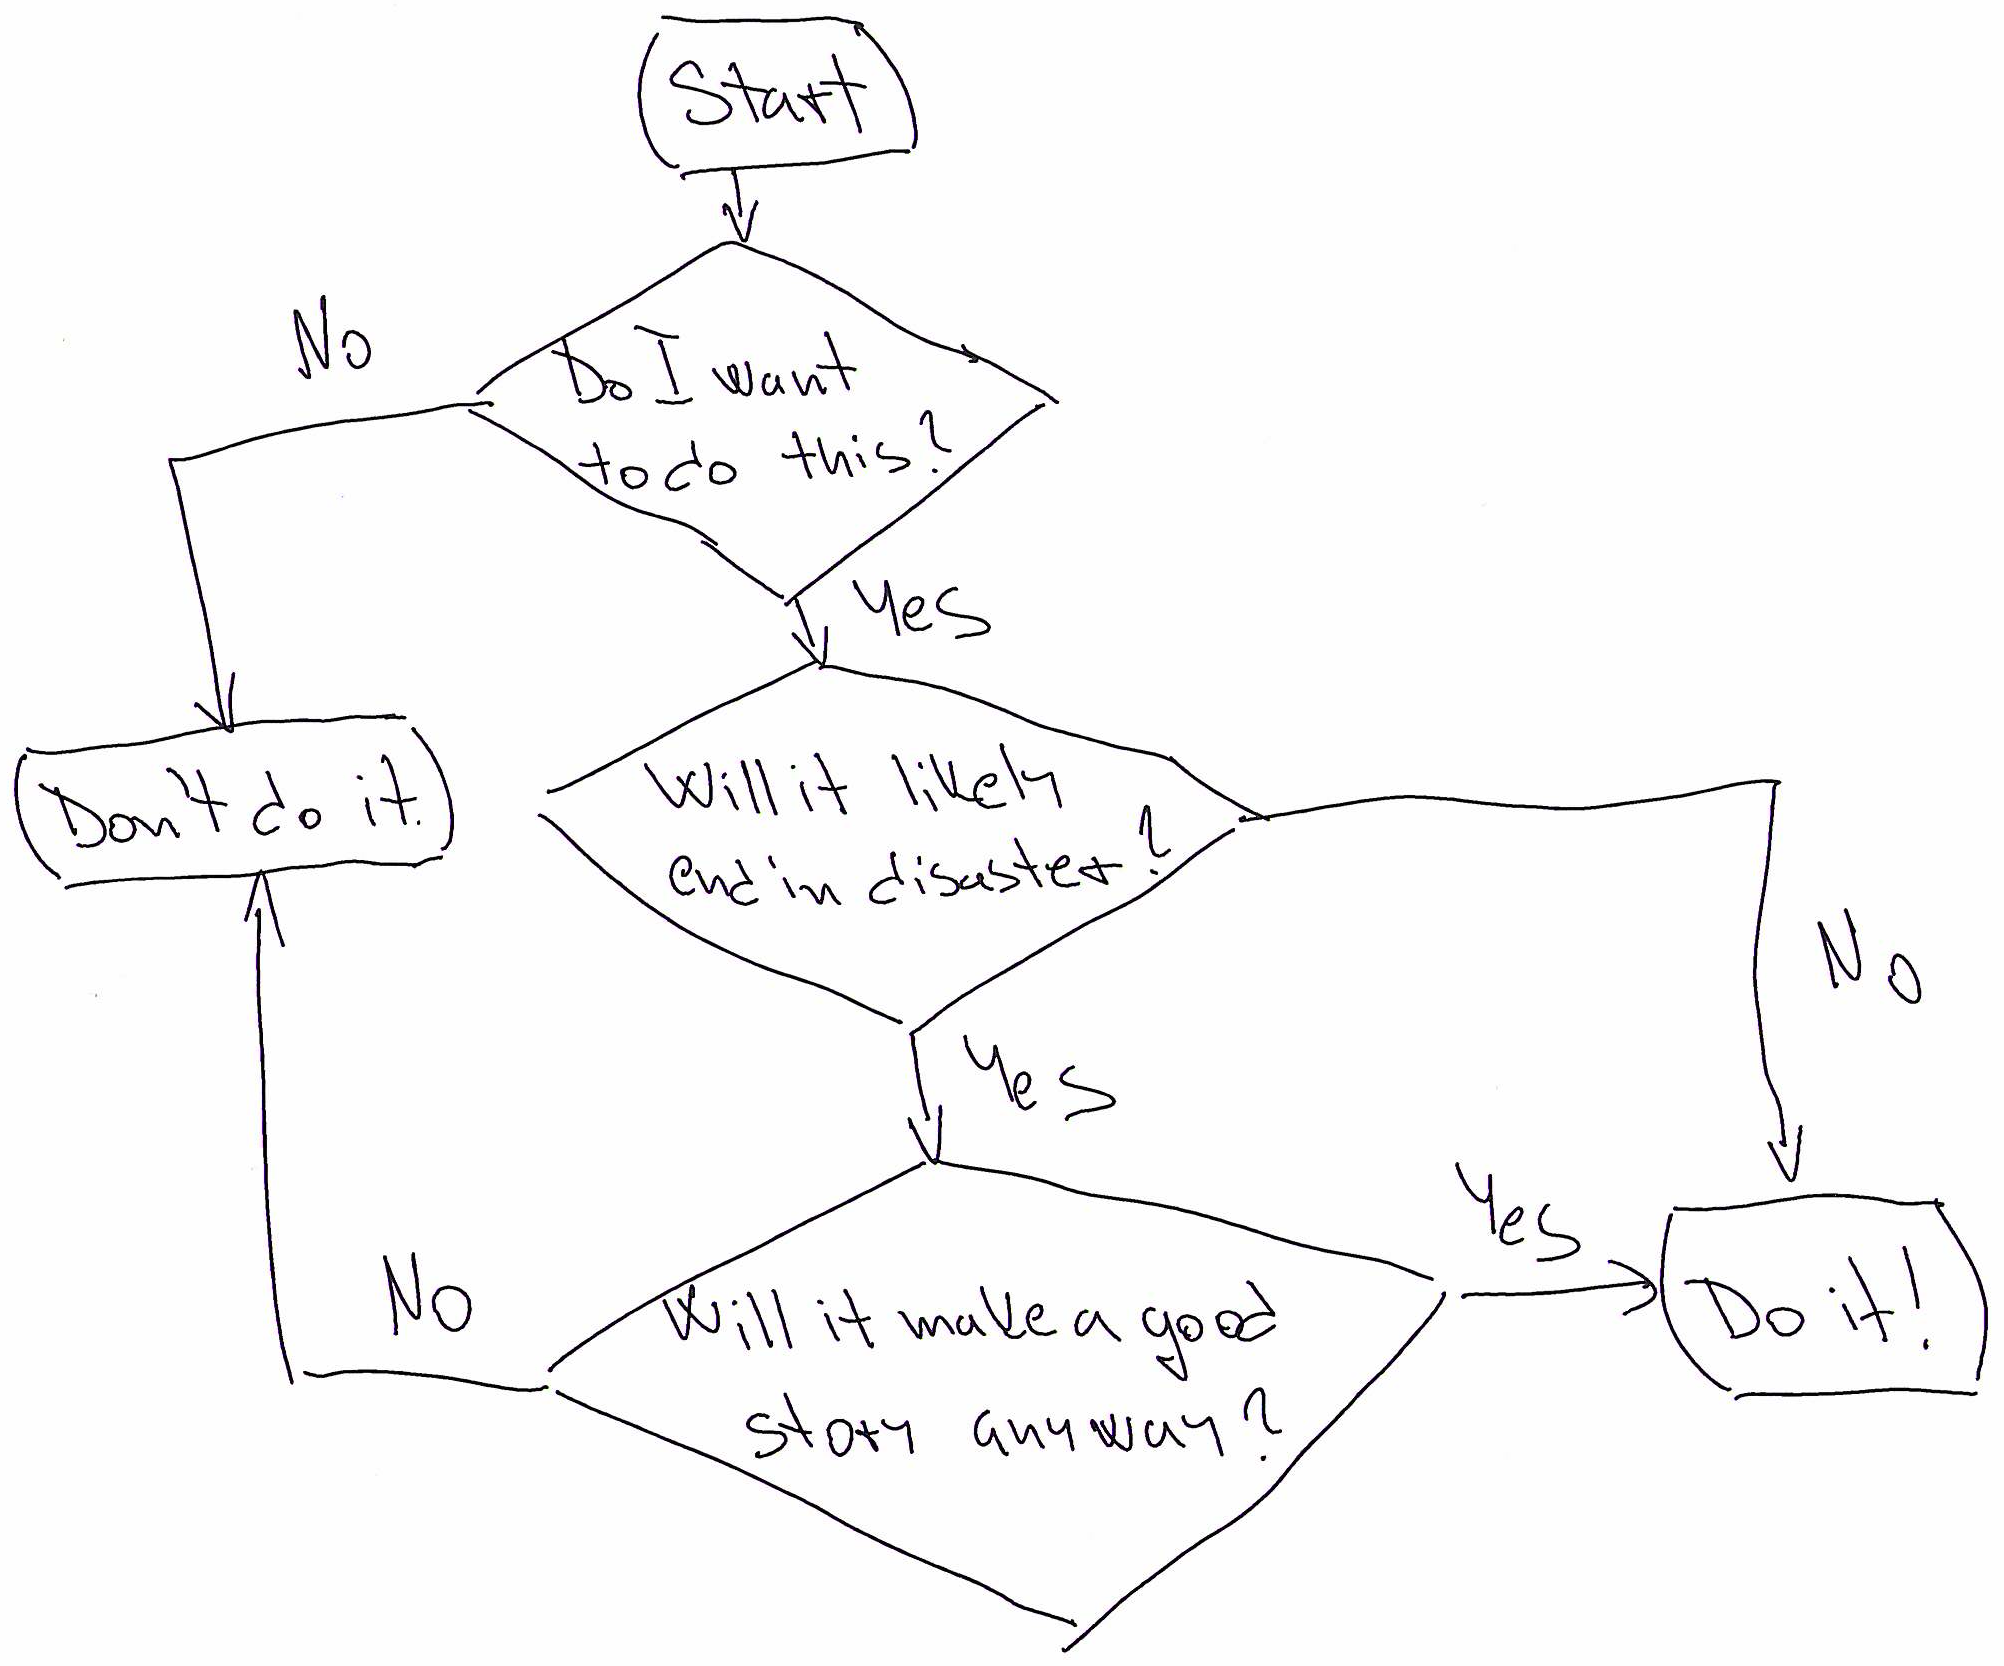 Start
No
Do I want
to do this?
Yes
Don't do it.
Will it likely
end in disaster?
No
Yes
Yes
No
Will it make a good
story anyway?
Do it!